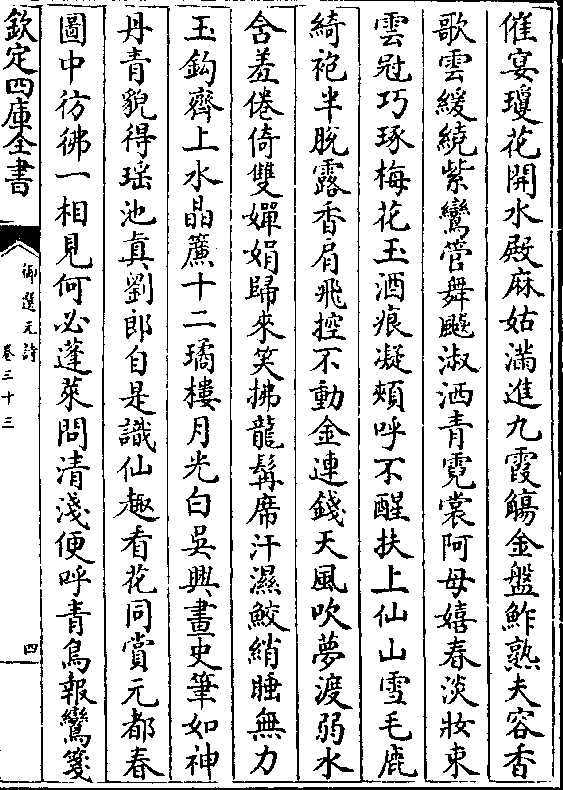 催宴瓊花開水殿麻姑滿進九霞觴金盤鮓熟夫容香
歌雲緩繞紫鸞管舞飈淑洒青霓裳阿母嬉春淡妝束
雲冠巧琢梅花玉酒痕凝頰呼不醒扶上仙山雪毛鹿
綺袍半脫露香肩飛控不動金連錢天風吹夢渡弱水
含羞倦倚雙嬋娟歸來笑拂龍鬚席汗濕鮫綃睡無力
玉鈎齊上水晶簾十二璚樓月光白吳興畫史筆如神
丹青貌得瑶池真劉郎自是識仙趣看花同賞元都春
圖中彷彿一相見何必蓬萊問清淺便呼青鳥報鸞箋
欽定四庫全書
御選元詩
卷三十三
四